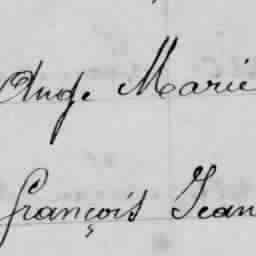 Ange Marie
françois Jean